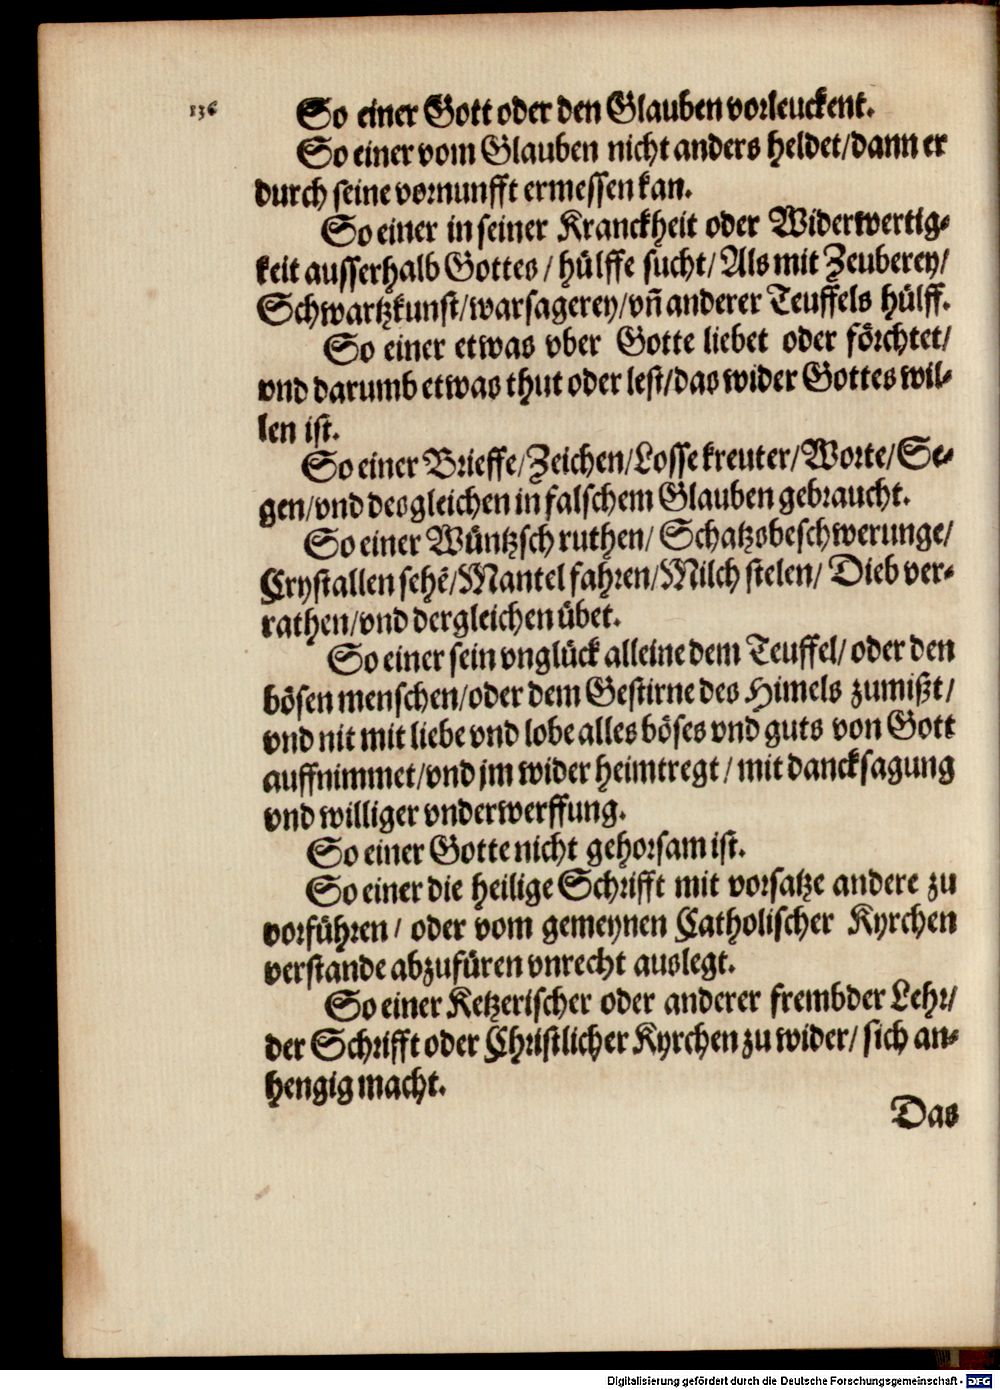 136
So einer Gott oder den Glauben vorleuckent.
So einer vom Glauben nicht anders heldet/dann er
durch seine vornunfft ermessen kan.
So einer in seiner Kranckheit oder Widerwertig-
keit ausserhalb Gottes / hülffe sucht/Als mit Zeuberey/
Schwartzkunst/warsagerey/vñ anderer Teuffels hülff.
So einer etwas vber Gotte liebet oder förchtet/
vnd darumb etwas thut oder lest/das wider Gottes wil-
len ist.
So einer Brieffe/Zeichen/Losse kreuter/Worte/Se-
gen/vnd desgleichen in falschem Glauben gebraucht.
So einer Wüntzsch ruthen/ Schatzsbeschwerunge/
Crystallen sehē/Mantel fahren/Milch stelen/ Dieb ver-
rathen/vnd dergleichen übet.
So einer sein vnglück alleine dem Teuffel/ oder den
bösen menschen/oder dem Gestirne des Himels zumißt/
vnd nit mit liebe vnd lobe alles böses vnd guts von Gott
auffnimmet/vnd jm wider heimtregt / mit dancksagung
vnd williger vnderwerffung.
So einer Gotte nicht gehorsam ist.
So einer die heilige Schrifft mit vorsatze andere zu
vorführen / oder vom gemeynen Catholischer Kyrchen
verstande abzufüren vnrecht auslegt.
So einer Ketzerischer oder anderer frembder Lehr/
der Schrifft oder Christlicher Kyrchen zu wider/ sich an-
hengig macht.
Das
Digitalisierung gefördert durch die Deutsche Forschungsgemeinschaft - DFG